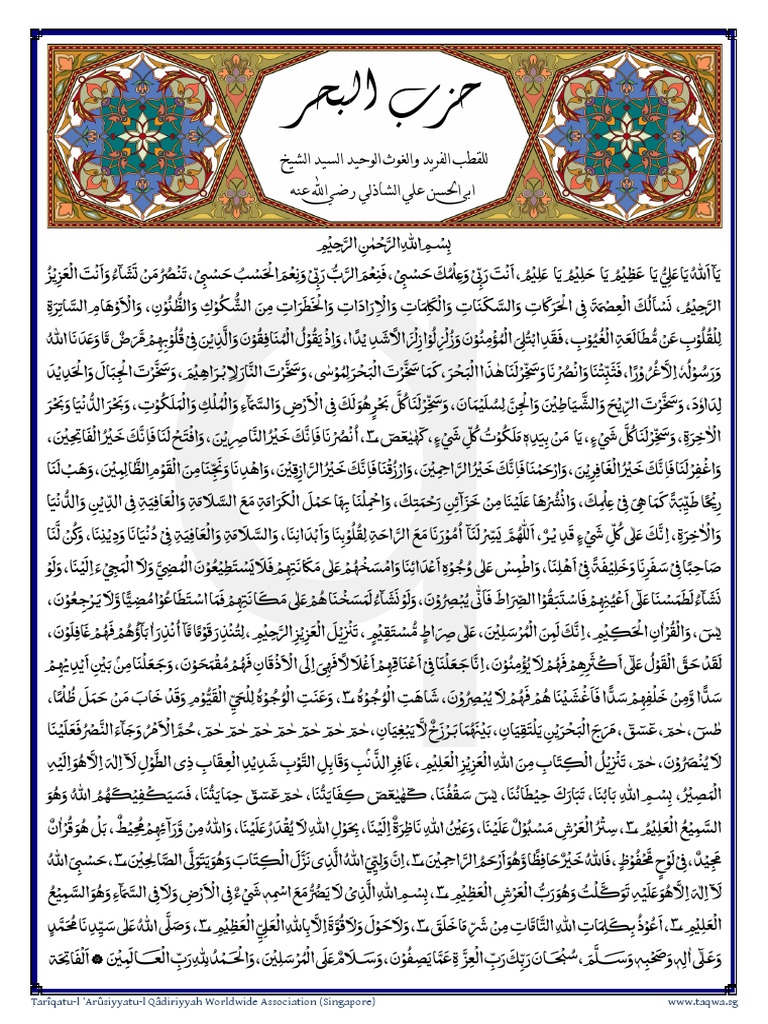 حزب البحر
للقطب الفريد والغوث الوحيد السيد الشيخ
ابى الحسن علي الشاذلي رضي الله عنه
بِسْمِ اللهِ الرَّحْمٰنِ الرَّحِيْمِ
يَآ اَللهُ يَا عَلِيُّ يَا عَظِيْمُ يَا حَلِيْمُ يَا عَلِيْمُ، اَنْتَ رَبِّيْ وَعِلْمُكَ حَسْبِيْ، فَنِعْمَ الرَّبُّ رَبِّيْ وَنِعْمَ الْحَسْبُ حَسْبِيْ، تَنْصُرُ مَنْ تَشَآءُ وَاَنْتَ الْعَزِيْزُ
الرَّحِيْمُ، نَسْأَلُكَ الْعِصْمَةَ فِى الْحَرَكَاتِ وَالسَّكَنَاتِ وَالْكَلِمَاتِ وَالْاِرَادَاتِ وَالْخَطَرَاتِ مِنَ الشُّكُوْكِ وَالظُّنُوْنِ، وَالْاَوْهَامِ السَّاتِرَةِ
لِلْقُلُوْبِ عَنْ مُّطَالَعَةِ الْغُيُوْبِ، فَقَدِ ابْتُلِىَ الْمُؤْمِنُوْنَ وَزُلْزِلُوْا زِلْزَالًا شَدِيْدًا، وَاِذْ يَقُوْلُ الْمُنَافِقُوْنَ وَالَّذِيْنَ فِىْ قُلُوْبِهِمْ مَّرَضٌ مَّا وَعَدَنَا اللهُ
وَرَسُوْلُهٗ اِلَّا غُرُوْرًا، فَثَبِّتْنَا وَانْصُرْنَا وَسَخِّرْ لَنَا هٰذَا الْبَحْرَ، كَمَا سَخَّرْتَ الْبَحْرَ لِمُوْسٰى، وَسَخَّرْتَ النَّارَ لِاِبْرَاهِيْمَ، وَسَخَّرْتَ الْجِبَالَ وَالْحَدِيْدَ
لِدَاوٗدَ، وَسَخَّرْتَ الرِّيْحَ وَالشَّيَاطِيْنَ وَالْجِنَّ لِسُلَيْمَانَ، وَسَخِّرْ لَنَا كُلَّ بَحْرٍ هُوَ لَكَ فِى الْاَرْضِ وَالسَّمَآءِ وَالْمُلْكِ وَالْمَلَكُوْتِ، وَبَحْرَ الدُّنْيَا وَبَحْرَ
الْاٰخِرَةِ، وَسَخِّرْ لَنَا كُلَّ شَيْءٍ، يَا مَنْ بِيَدِهٖ مَلَكُوْتُ كُلِّ شَيْءٍ، كٓهٰيٰعٓصٓ ـ٣ـ، اُنْصُرْنَا فَاِنَّكَ خَيْرُ النَّاصِرِيْنَ، وَافْتَحْ لَنَا فَاِنَّكَ خَيْرُ الْفَاتِحِيْنَ،
وَاغْفِرْ لَنَا فَاِنَّكَ خَيْرُ الْغَافِرِيْنَ، وَارْحَمْنَا فَاِنَّكَ خَيْرُ الرَّاحِمِيْنَ، وَارْزُقْنَا فَاِنَّكَ خَيْرُ الرَّازِقِيْنَ، وَاهْدِنَا وَنَجِّنَا مِنَ الْقَوْمِ الظَّالِمِيْنَ، وَهَبْ لَنَا
رِيْحًا طَيِّبَةً كَمَا هِىَ فِىْ عِلْمِكَ، وَانْشُرْهَا عَلَيْنَا مِنْ خَزَآئِنِ رَحْمَتِكَ، وَاحْمِلْنَا بِهَا حَمْلَ الْكَرَامَةِ مَعَ السَّلَامَةِ وَالْعَافِيَةِ فِى الدِّيْنِ وَالدُّنْيَا
وَالْاٰخِرَةِ، اِنَّكَ عَلٰى كُلِّ شَيْءٍ قَدِيْرٌ، اَللّٰهُمَّ يَسِّرْ لَنَآ اُمُوْرَنَا مَعَ الرَّاحَةِ لِقُلُوْبِنَا وَاَبْدَانِنَا، وَالسَّلَامَةِ وَالْعَافِيَةِ فِىْ دُنْيَانَا وَدِيْنِنَا، وَكُنْ لَّنَا
صَاحِبًا فِىْ سَفَرِنَا وَخَلِيْفَةً فِىْ اَهْلِنَا، وَاطْمِسْ عَلٰى وُجُوْهِ اَعْدَآئِنَا وَامْسَخْهُمْ عَلٰى مَكَانَتِهِمْ فَلَا يَسْتَطِيْعُوْنَ الْمُضِيَّ وَلَا الْمَجِيْءَ اِلَيْنَا، وَلَوْ
نَشَآءُ لَطَمَسْنَا عَلٰٓى اَعْيُنِهِمْ فَاسْتَبَقُوا الصِّرَاطَ فَاَنّٰى يُبْصِرُوْنَ، وَلَوْ نَشَآءُ لَمَسَخْنَاهُمْ عَلٰى مَكَانَتِهِمْ فَمَا اسْتَطَاعُوْا مُضِيًّا وَّلَا يَرْجِعُوْنَ،
يٰسٓ، وَالْقُرْاٰنِ الْحَكِيْمِ، اِنَّكَ لَمِنَ الْمُرْسَلِيْنَ، عَلٰى صِرَاطٍ مُّسْتَقِيْمٍ، تَنْزِيْلَ الْعَزِيْزِ الرَّحِيْمِ، لِتُنْذِرَ قَوْمًا مَّآ اُنْذِرَ اٰبَآؤُهُمْ فَهُمْ غَافِلُوْنَ،
لَقَدْ حَقَّ الْقَوْلُ عَلٰٓى اَكْثَرِهِمْ فَهُمْ لَا يُؤْمِنُوْنَ، اِنَّا جَعَلْنَا فِىْٓ اَعْنَاقِهِمْ اَغْلَالًا فَهِىَ اِلَى الْاَذْقَانِ فَهُمْ مُّقْمَحُوْنَ، وَجَعَلْنَا مِنْ بَيْنِ اَيْدِيْهِمْ
سَدًّا وَّمِنْ خَلْفِهِمْ سَدًّا فَاَغْشَيْنَاهُمْ فَهُمْ لَا يُبْصِرُوْنَ، شَاهَتِ الْوُجُوْهُ ـ٣ـ، وَعَنَتِ الْوُجُوْهُ لِلْحَيِّ الْقَيُّوْمِ وَقَدْ خَابَ مَنْ حَمَلَ ظُلْمًا،
طٰسٓ، حٰمٓ، عٓسٓقٓ، مَرَجَ الْبَحْرَيْنِ يَلْتَقِيَانِ، بَيْنَهُمَا بَرْزَخٌ لَّا يَبْغِيَانِ، حٰمٓ حٰمٓ حٰمٓ حٰمٓ حٰمٓ حٰمٓ حٰمٓ، حُمَّ الْاَمْرُ وَجَآءَ النَّصْرُ فَعَلَيْنَا
لَا يُنْصَرُوْنَ، حٰمٓ، تَنْزِيْلُ الْكِتَابِ مِنَ اللهِ الْعَزِيْزِ الْعَلِيْمِ، غَافِرِ الذَّنْبِ وَقَابِلِ التَّوْبِ شَدِيْدِ الْعِقَابِ ذِى الطَّوْلِ لَآ اِلٰهَ اِلَّا هُوَ اِلَيْهِ
الْمَصِيْرُ، بِسْمِ اللهِ بَابُنَا، تَبَارَكَ حِيْطَانُنَا، يٰسٓ سَقْفُنَا، كٓهٰيٰعٓصٓ كِفَايَتُنَا، حٰمٓ عٓسٓقٓ حِمَايَتُنَا، فَسَيَكْفِيْكَهُمُ اللهُ وَهُوَ
السَّمِيْعُ الْعَلِيْمُ ـ٣ـ، سِتْرُ الْعَرْشِ مَسْبُوْلٌ عَلَيْنَا، وَعَيْنُ اللهِ نَاظِرَةٌ اِلَيْنَا، بِحَوْلِ اللهِ لَا يُقْدَرُ عَلَيْنَا، وَاللهُ مِنْ وَّرَآئِهِمْ مُحِيْطٌ، بَلْ هُوَ قُرْاٰنٌ
مَّجِيْدٌ، فِىْ لَوْحٍ مَّحْفُوْظٍ، فَاللهُ خَيْرٌ حَافِظًا وَّهُوَ اَرْحَمُ الرَّاحِمِيْنَ ـ٣ـ، اِنَّ وَلِيِّيَ اللهُ الَّذِى نَزَّلَ الْكِتَابَ وَهُوَ يَتَوَلَّى الصَّالِحِيْنَ ـ٣ـ، حَسْبِىَ اللهُ
لَآ اِلٰهَ اِلَّا هُوَ عَلَيْهِ تَوَكَّلْتُ وَهُوَ رَبُّ الْعَرْشِ الْعَظِيْمِ ـ٣ـ، بِسْمِ اللهِ الَّذِىْ لَا يَضُرُّ مَعَ اسْمِهٖ شَىْءٌ فِى الْاَرْضِ وَلَا فِى السَّمَآءِ وَهُوَ السَّمِيْعُ
الْعَلِيْمُ ـ٣ـ، اَعُوْذُ بِكَلِمَاتِ اللهِ التَّآمَّاتِ مِنْ شَرِّ مَا خَلَقَ ـ٣ـ، وَلَا حَوْلَ وَلَا قُوَّةَ اِلَّا بِاللهِ الْعَلِيِّ الْعَظِيْمِ ـ٣ـ، وَصَلَّى اللهُ عَلٰى سَيِّدِنَا مُحَمَّدٍ
وَعَلٰٓى اٰلِهٖ وَصَحْبِهٖ وَسَلَّمَ، سُبْحَانَ رَبِّكَ رَبِّ الْعِزَّةِ عَمَّا يَصِفُوْنَ، وَسَلَامٌ عَلَى الْمُرْسَلِيْنَ، وَالْحَمْدُ لِلّٰهِ رَبِّ الْعَالَمِيْنَ ۞ اَلْفَاتِحَة
Tarîqatu-l 'Arûsiyyatu-l Qâdiriyyah Worldwide Association (Singapore) www.taqwa.sg